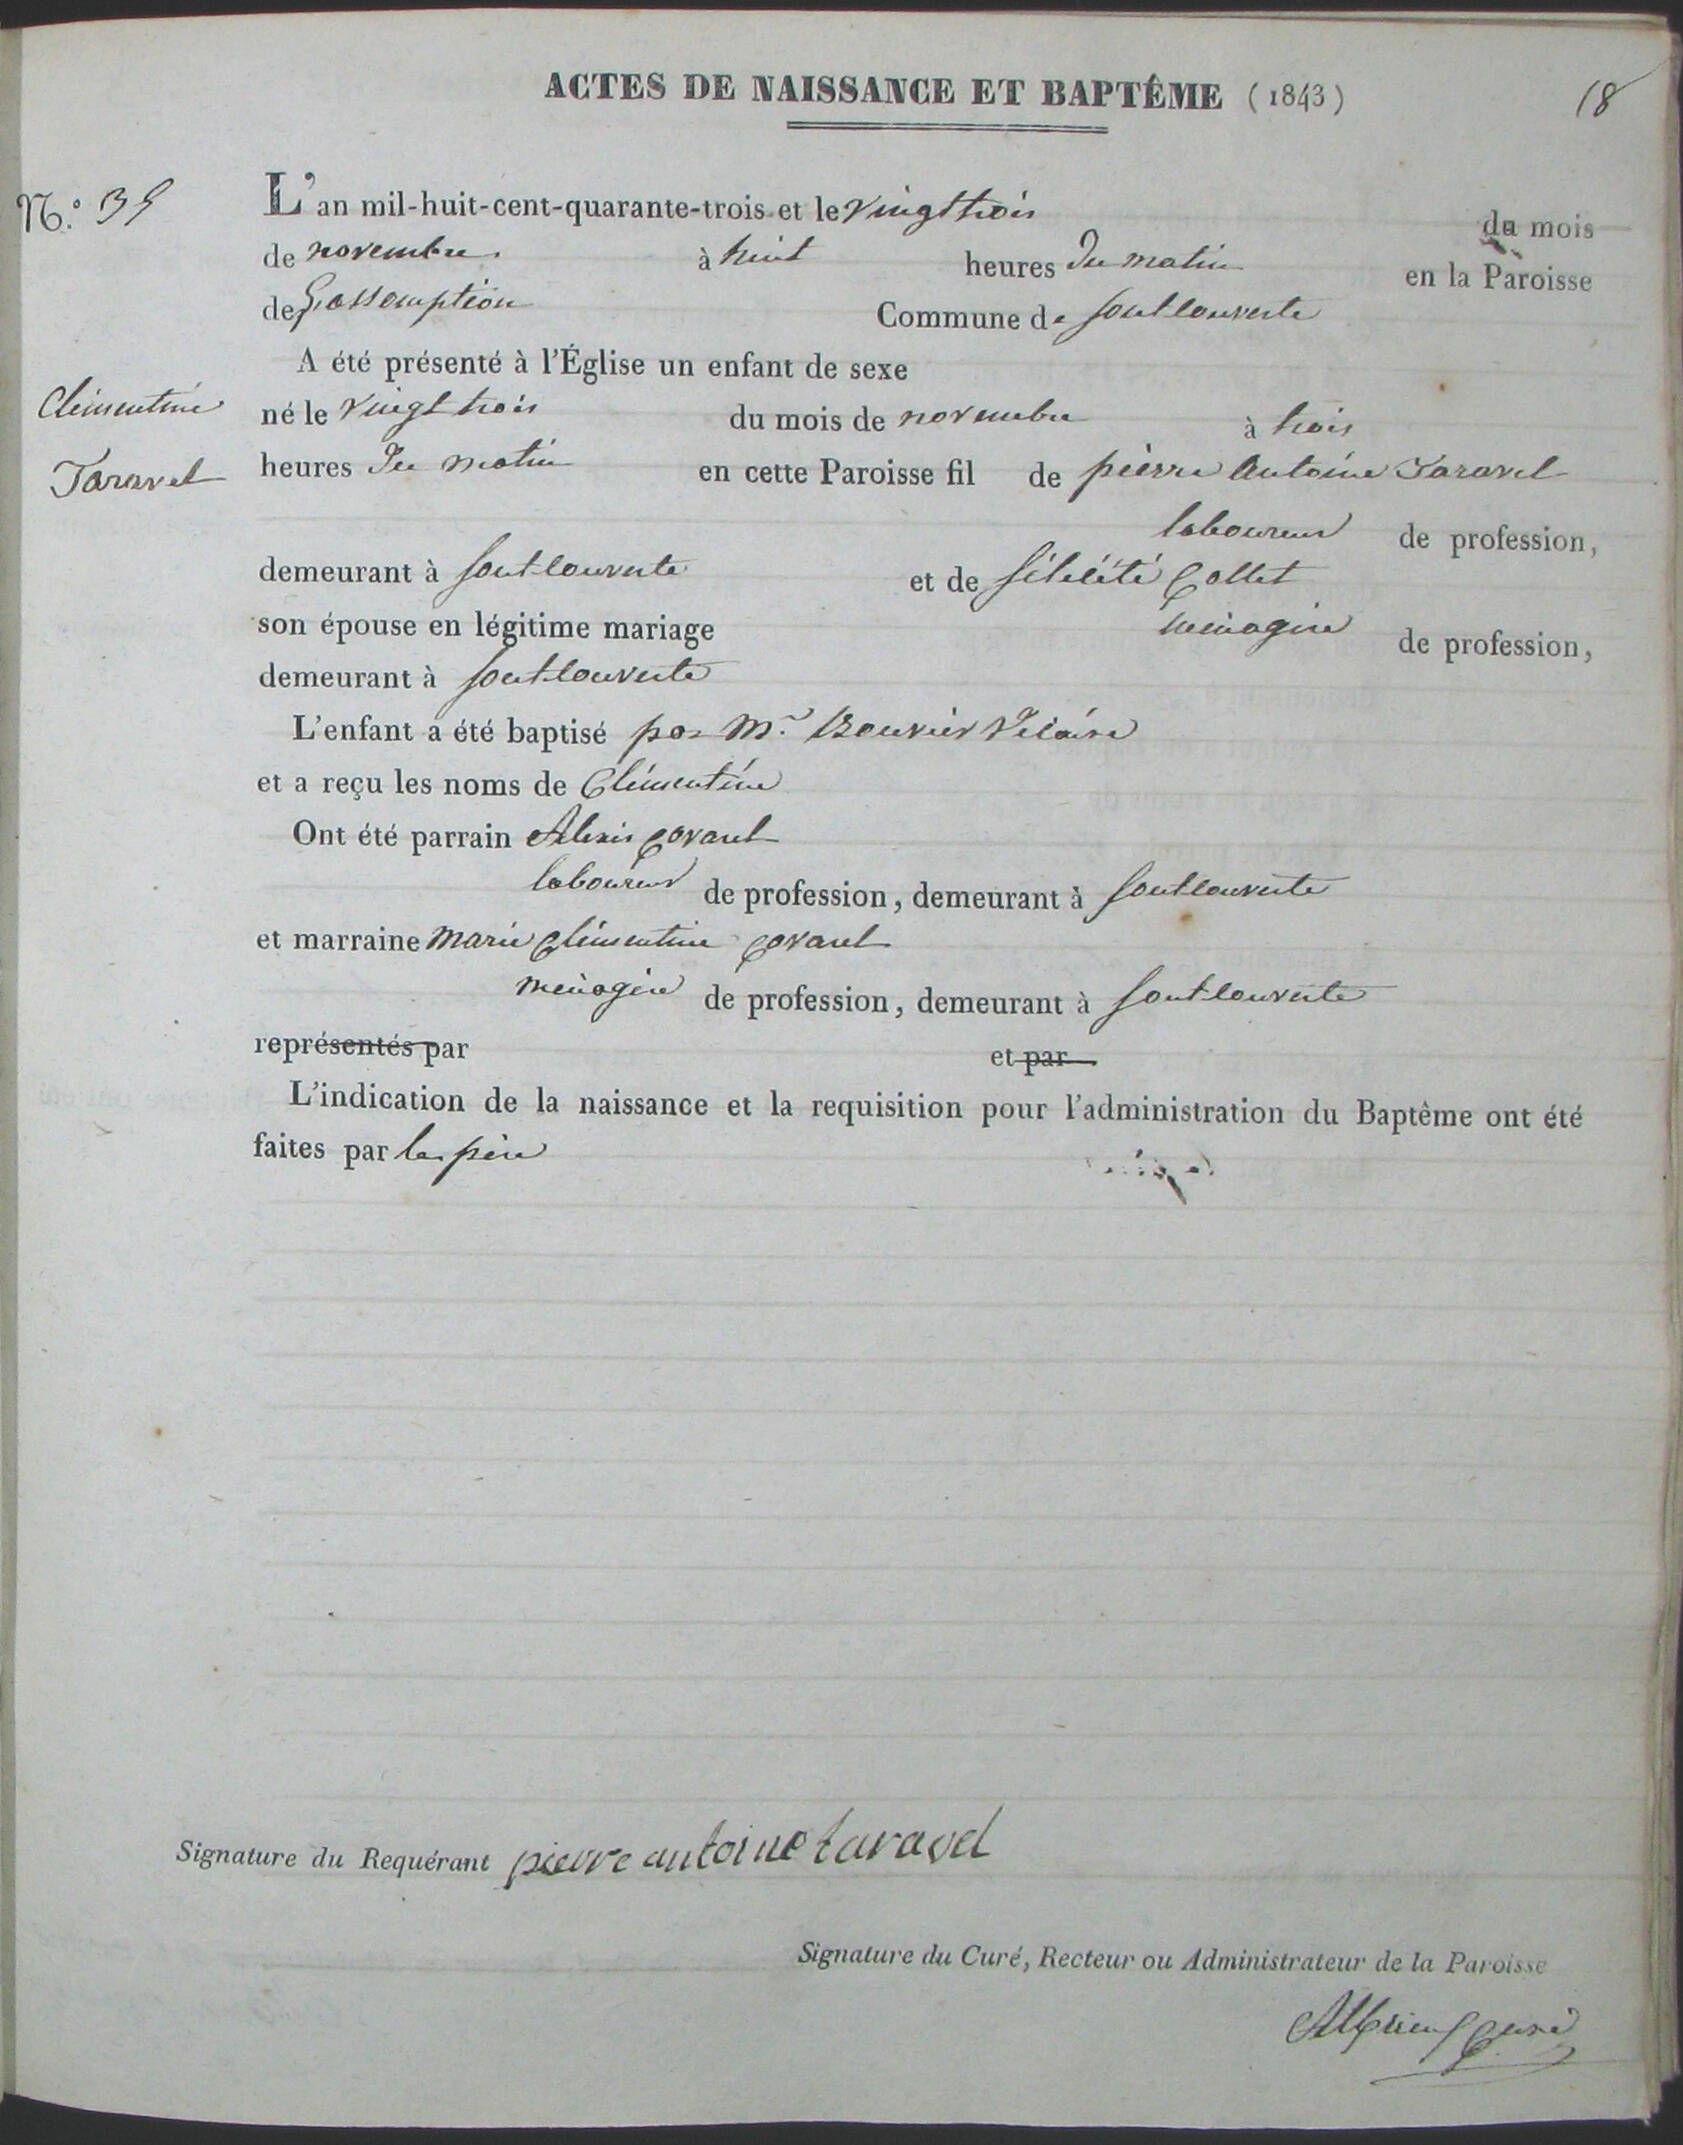 ACTES DE NAISSANCE ET BAPTÊME (1843)
18
N.º 35
L'an mil-huit-cent-quarante-trois et le vingt trois du mois
de novembre à huit heures du matin en la Paroisse
de L'assomption Commune de fontcouverte
A été présenté à l'Église un enfant de sexe
Clémentine
né le vingt trois du mois de novembre à trois
Taravel
heures du matin en cette Paroisse fil de pierre Antoine Taravel
laboureur de profession,
demeurant à fontcouverte et de félicité Collet
son épouse en légitime mariage ménagère de profession,
demeurant à fontcouverte
L'enfant a été baptisé par Mr. Bouvier Vicaire
et a reçu les noms de Clémentine
Ont été parrain Alexis Covarel
laboureur de profession, demeurant à fontcouverte
et marraine Marie Clémentine Covarel
ménagère de profession, demeurant à fontcouverte
représentés par et par
L'indication de la naissance et la requisition pour l'administration du Baptême ont été
faites par le père
Signature du Requérant pierre antoine taravel
Signature du Curé, Recteur ou Administrateur de la Paroisse
curé